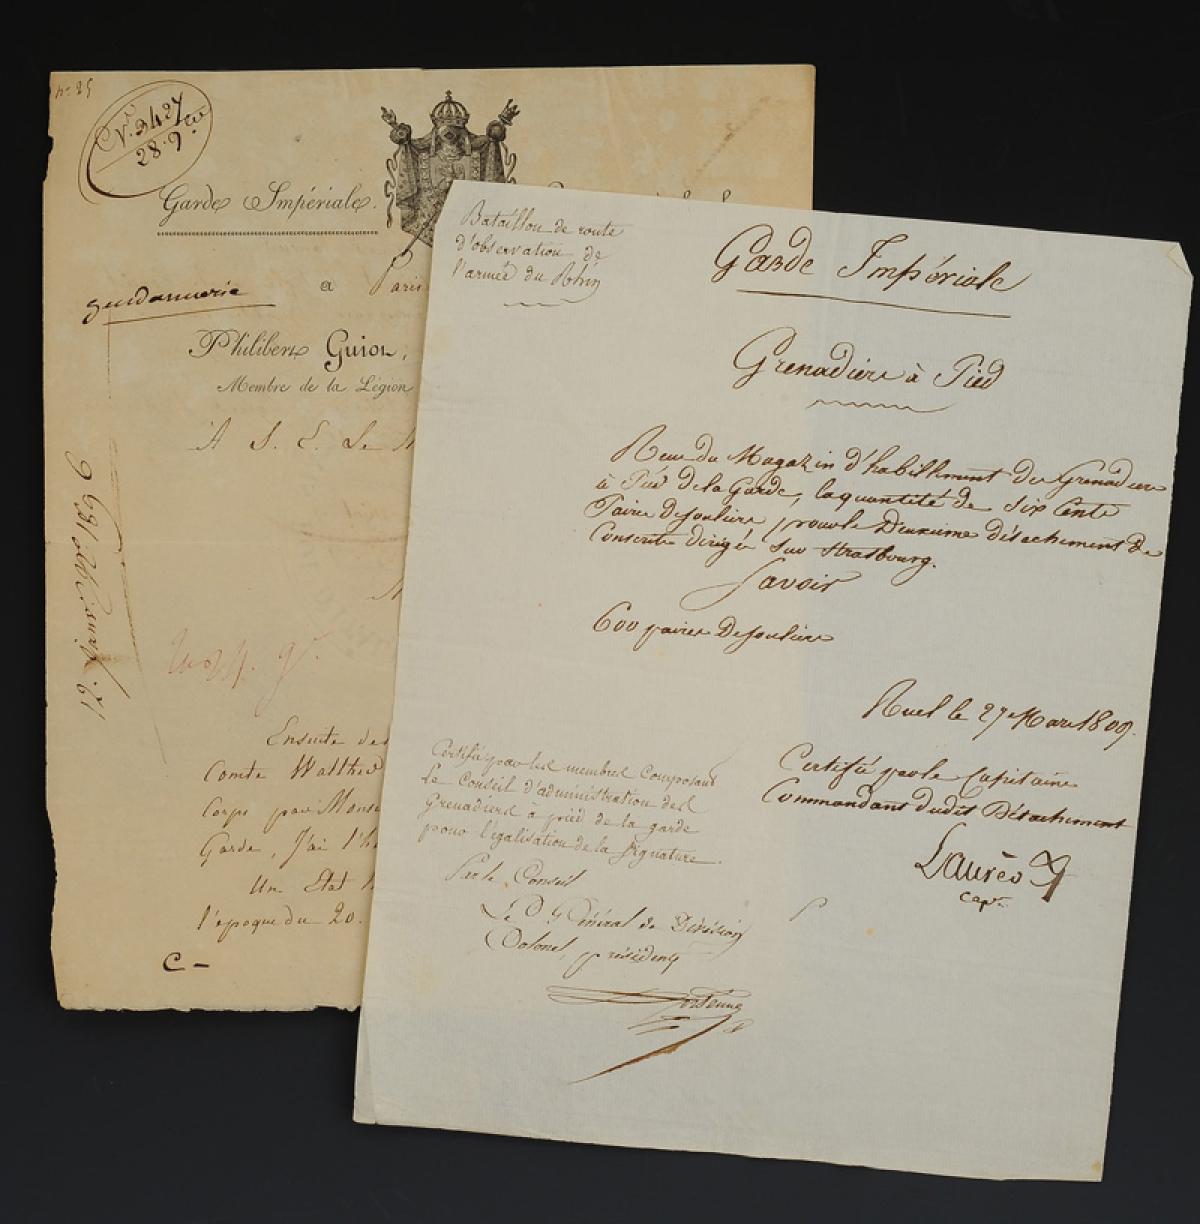 nº 25
Nº 3427
28. 9bre
Garde Impériale.
gendarmerie
a Paris
Philibert Guiot,
Membre de la Légion
A S. E. Le
Ensuite des
Comte Walther
corps par Mons
Garde, J'ai l'h
Un Etat
l'époque du 20.
C –
Bataillon de route
d'observation de
l'armée du Rhin
Garde Impériale
Grenadiers à Pied
Recu du Magazin d'habillment des Grenadiers
à Pied de la Garde, la quantité de Six Cents
Paires de souliers pour le Deuxieme détachement de
Conscrits dirigée sur Strasbourg.
Savoir
600 paires De souliers
Ruel le 27 Mars 1809.
Certifié par le Capitaine
Commandant dudit Détachement
Laurède
Cape.
Certifié par les membres composant
Le Conseil d'administration des
Grenadiers à pied de la garde
pour l'égalisation de la signature.
Par le Conseil
Le Général de Division
Colonel, président
Dorsenne